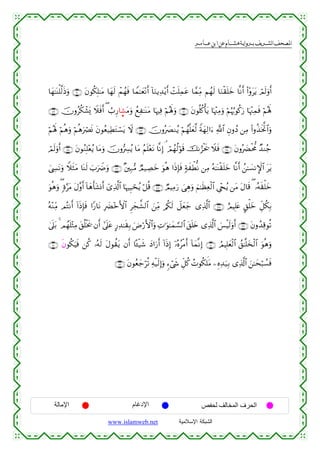 المصحف الشريف برواية هشام عن ابن عامر
أَوَلَمْ يَرَوْا أَنَّا خَلَقْنَا لَهُم مِّمَّا عَمِلَتْ أَيْدِينَا أَنْعَٰمًا فَهُمْ لَهَا مَٰلِكُونَ ۝ وَذَلَّلْنَٰهَا
لَهُمْ فَمِنْهَا رَكُوبُهُمْ وَمِنْهَا يَأْكُلُونَ ۝ وَلَهُمْ فِيهَا مَنَٰفِعُ وَمَشَارِبُ ۖ أَفَلَا يَشْكُرُونَ ۝
وَٱتَّخَذُوا مِن دُونِ ٱللَّهِ ءَالِهَةً لَّعَلَّهُمْ يُنصَرُونَ ۝ لَا يَسْتَطِيعُونَ نَصْرَهُمْ وَهُمْ لَهُمْ
جُندٌ مُّحْضَرُونَ ۝ فَلَا يَحْزُنكَ قَوْلُهُمْ ۘ إِنَّا نَعْلَمُ مَا يُسِرُّونَ وَمَا يُعْلِنُونَ ۝ أَوَلَمْ
يَرَ ٱلْإِنسَٰنُ أَنَّا خَلَقْنَٰهُ مِن نُّطْفَةٍ فَإِذَا هُوَ خَصِيمٌ مُّبِينٌ ۝ وَضَرَبَ لَنَا مَثَلًا وَنَسِيَ
خَلْقَهُۥ ۖ قَالَ مَن يُحْيِ ٱلْعِظَٰمَ وَهِيَ رَمِيمٌ ۝ قُلْ يُحْيِيهَا ٱلَّذِي أَنشَأَهَا أَوَّلَ مَرَّةٍ ۖ وَهُوَ
بِكُلِّ خَلْقٍ عَلِيمٌ ۝ ٱلَّذِي جَعَلَ لَكُم مِّنَ ٱلشَّجَرِ ٱلْأَخْضَرِ نَارًا فَإِذَا أَنتُم مِّنْهُ
تُوقِدُونَ ۝ أَوَلَيْسَ ٱلَّذِي خَلَقَ ٱلسَّمَٰوَٰتِ وَٱلْأَرْضَ بِقَٰدِرٍ عَلَىٰ أَن يَخْلُقَ مِثْلَهُم ۚ بَلَىٰ
وَهُوَ ٱلْخَلَّٰقُ ٱلْعَلِيمُ ۝ إِنَّمَا أَمْرُهُۥ إِذَا أَرَادَ شَيْـًٔا أَن يَقُولَ لَهُۥ كُن فَيَكُونَ ۝
فَسُبْحَٰنَ ٱلَّذِي بِيَدِهِۦ مَلَكُوتُ كُلِّ شَيْءٍ وَإِلَيْهِ تُرْجَعُونَ ۝
الحرف المخالف لحفص الإدغام الإمالة
www.islamweb.net الشبكة الإسلامية